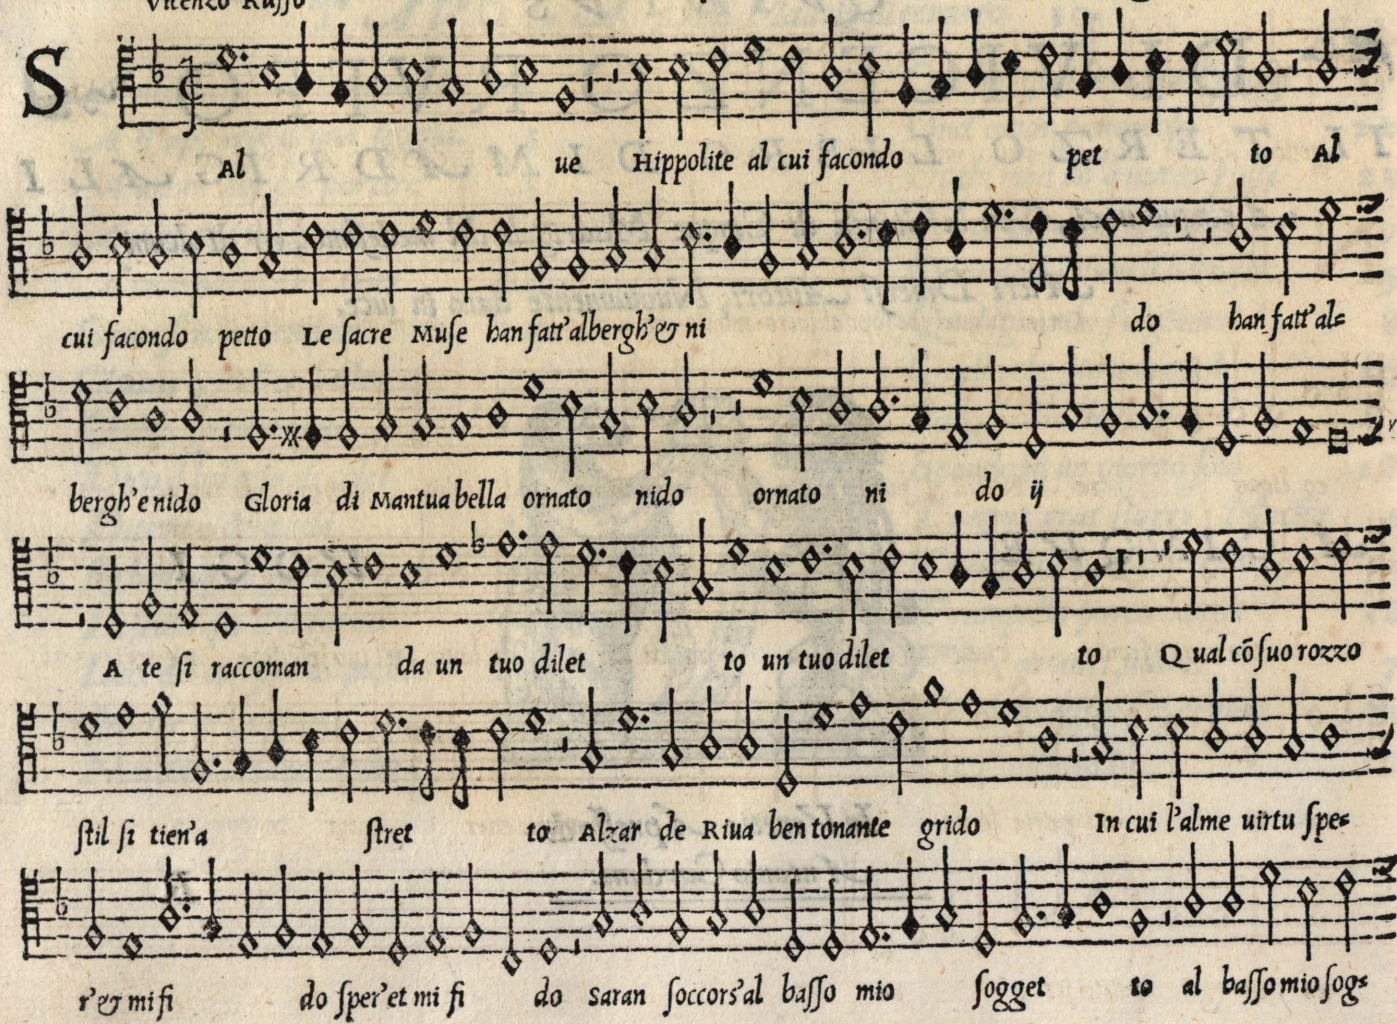 Vicenzo Ruffo
S
Al ue Hippolite al cui facondo pet to Al
cui facondo petto Le ſacre Muſe han fatt'albergh'& ni do han fatt'al=
bergh'e nido Gloria di Mantua bella ornato nido ornato ni do ij
A te ſi raccoman da un tuo dilet to un tuo dilet to Qual cõ ſuo rozzo
ſtil ſi tien'a ſtret to Alzar de Riua ben tonante grido In cui l'alme uirtu ſpe=
r'& mi fi do ſper'et mi fi do Saran ſoccors'al baſſo mio ſogget to al baſſo mio ſog=